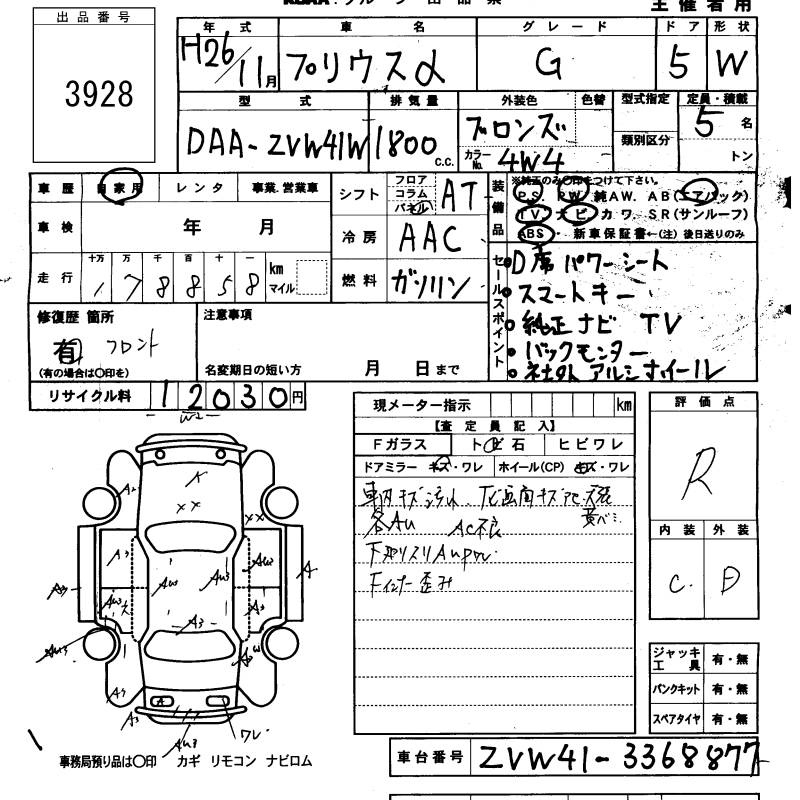 出品番号
3928
主催者用
年式 車名 グレード ドア 形状
H26/11月 プリウスα G 5 W
型式 排気量 外装色 色替 型式指定 定員・積載
DAA-ZVW41W 1800 c.c. ブロンズ 類別区分 5名
カラーNo. 4W4 トン
車歴 自家用 レンタ 事業.営業車
シフト フロア コラム パネル AT
装備品 ※純正のみ〇印をつけて下さい。
P.S P.W 純AW. AB(エアバック)
TV. ナビ カワ. SR(サンルーフ)
ABS 新車保証書←(注) 後日送りのみ
車検 年 月
冷房 AAC
走行 十万 万 千 百 十 一
178858 km マイル
燃料 ガソリン
セールスポイント
D席パワーシート
スマートキー
純正ナビ TV
バックモニター
社外アルミホイール
修復歴 箇所
有 フロント
(有の場合は〇印を)
注意事項
名変期日の短い方 月 日まで
リサイクル料 12030円
現メーター指示 km
【査定員記入】
Fガラス トビ石 ヒビワレ
ドアミラー キズ・ワレ ホイール(CP) キズ・ワレ
各AU AC不良
F インナー歪み
評価点
R
内装 外装
C. D
ジャッキ工具 有・無
パンクキット 有・無
スペアタイヤ 有・無
W2
A2
A3
AW3
A
ワレ
事務局預り品は〇印 カギ リモコン ナビロム
車台番号 ZVW41-3368877